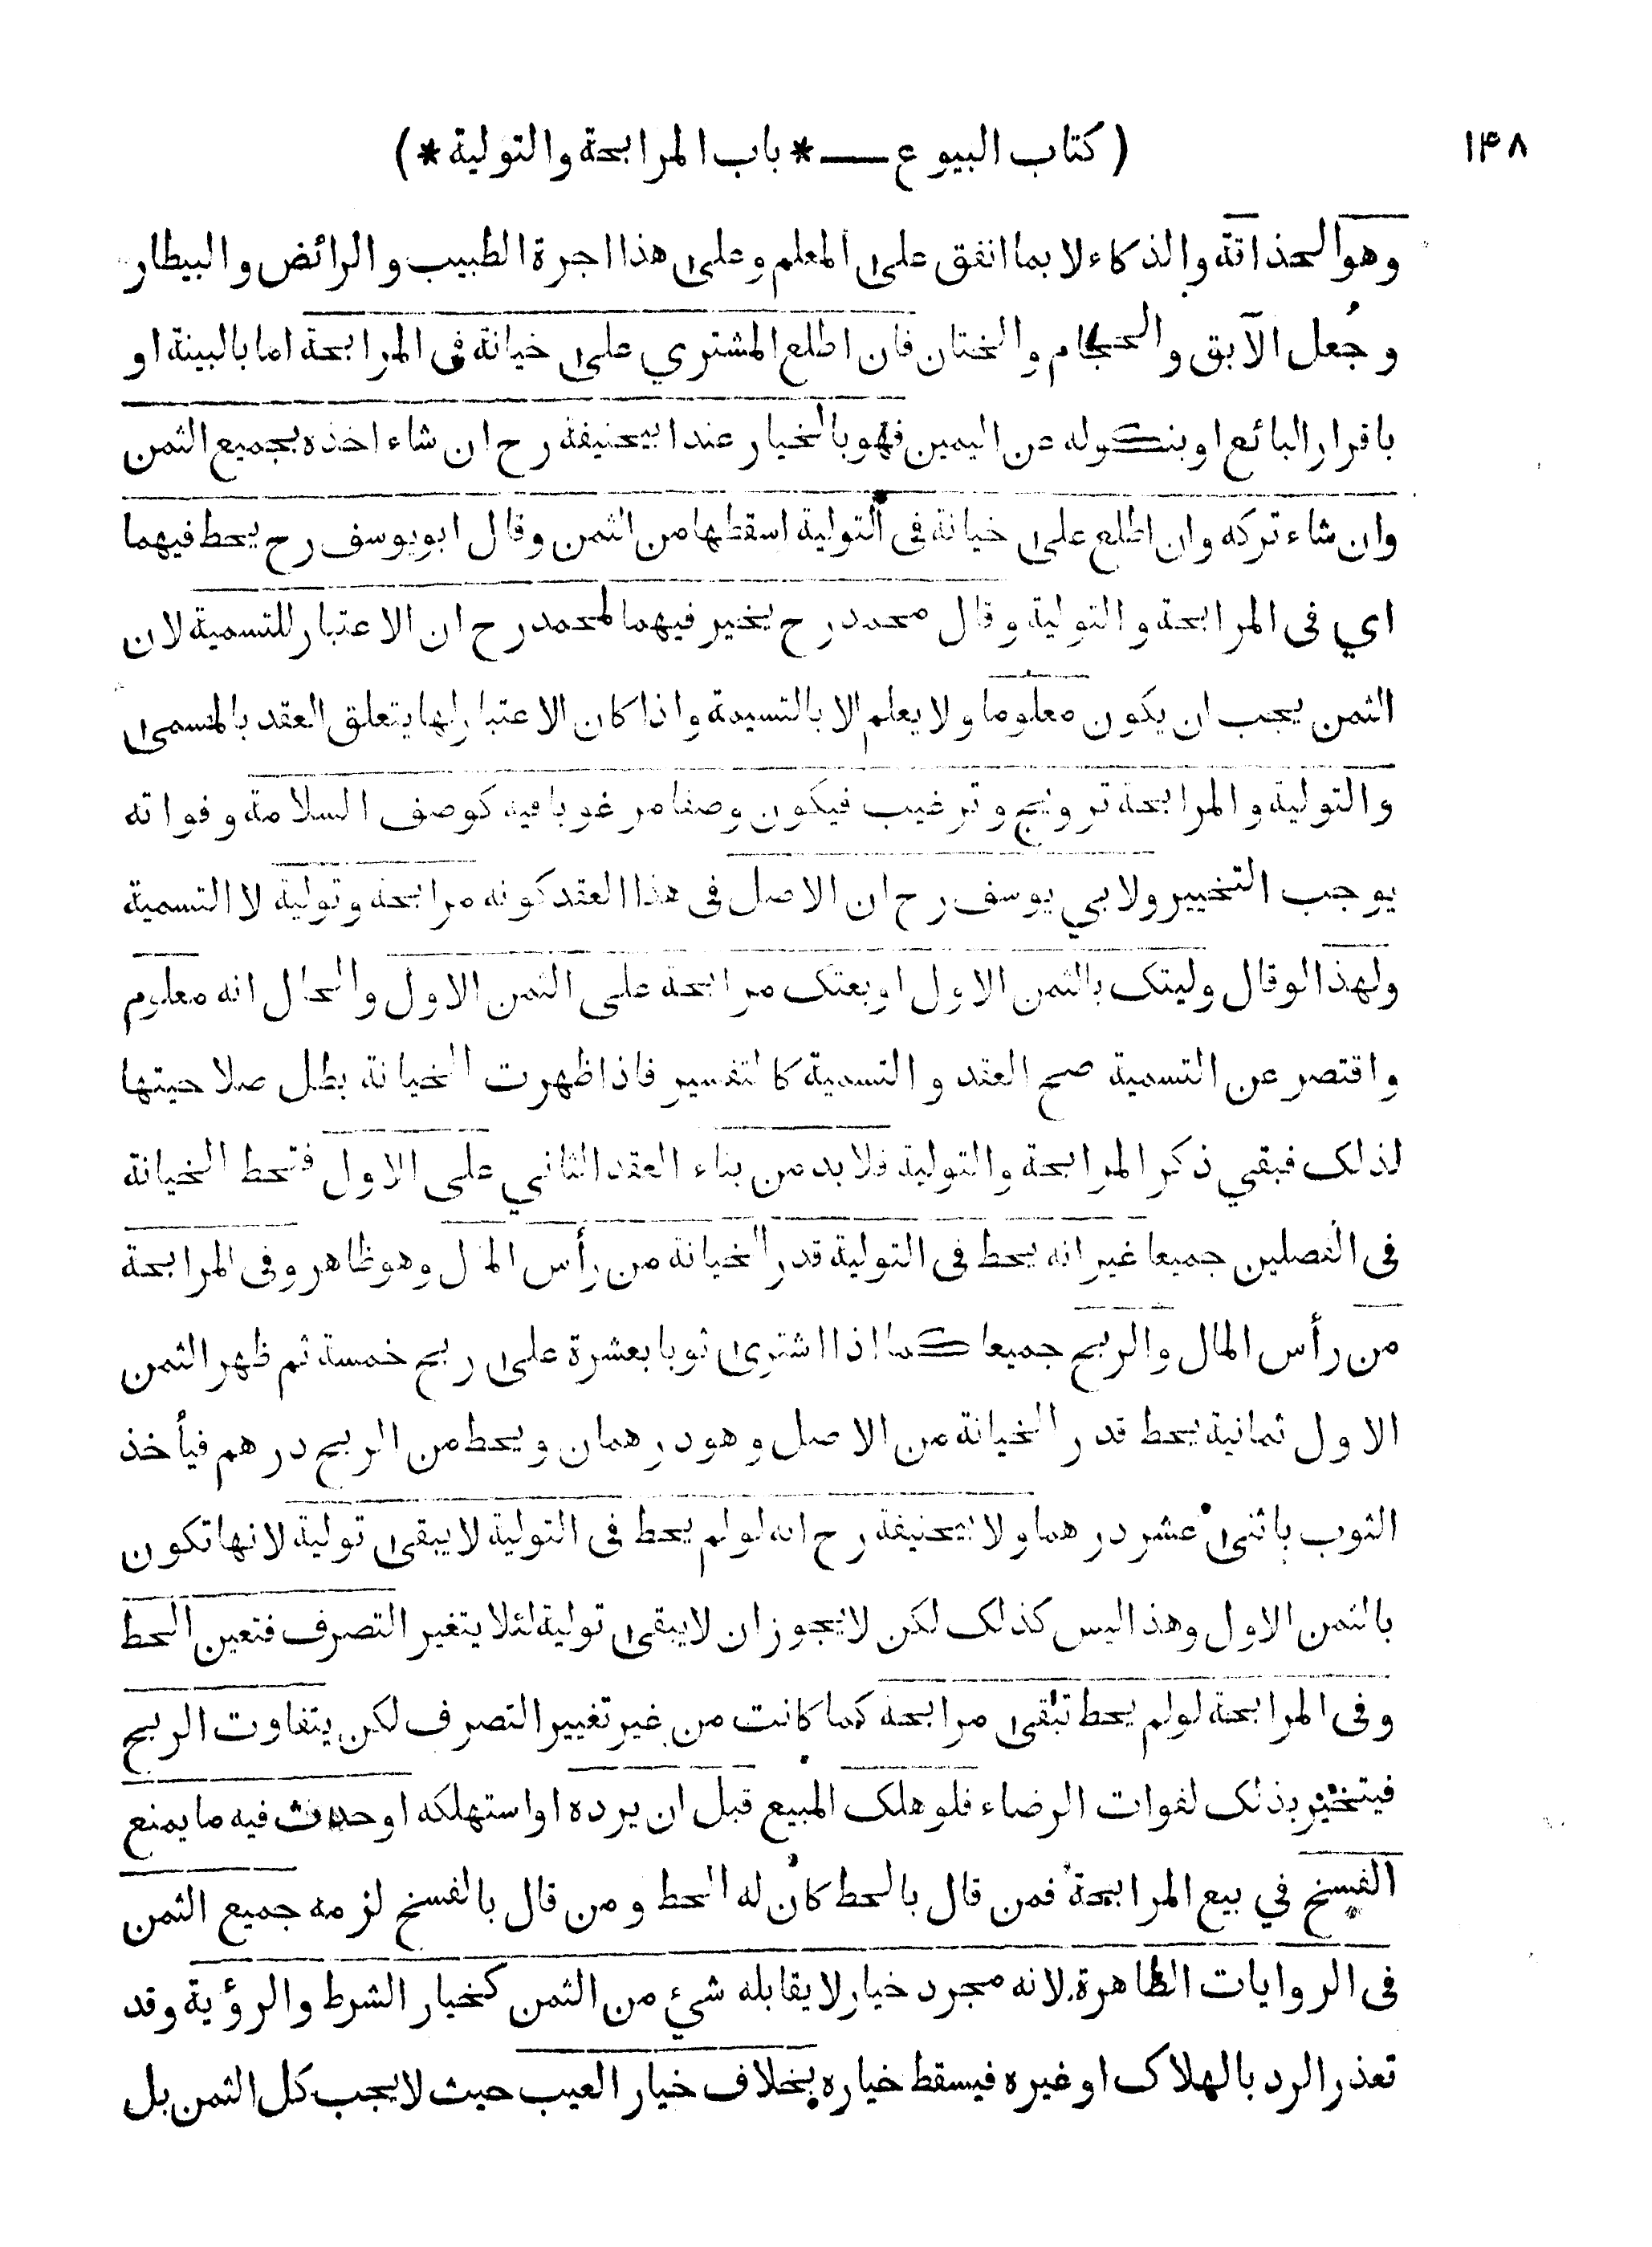 ۱۴۸
( کتاب البیوع ــــ * باب المرابحة والتولیة * )
وهو الحذاقة والذکاء لا بما انفق علی المعلم وعلی هذا اجرة الطبیب والرائض والبیطار
وجُعل الآبق والحجام والختان فان اطلع المشتري علی خیانة فی المرابحة اما بالبینة او
باقرار البائع او بنکوله عن الیمین فهو بالخیار عند ابیحنیفة رح ان شاء اخذه بجمیع الثمن
وان شاء ترکه وان اطلع علی خیانة فی التولیة اسقطها من الثمن وقال ابو یوسف رح یحط فیهما
اي فی المرابحة والتولیة وقال محمد رح یخیر فیهما لمحمد رح ان الاعتبار للتسمیة لان
الثمن یجب ان یکون معلوما ولا یعلم الا بالتسمیة واذا کان الاعتبار لها یتعلق العقد بالمسمی
والتولیة والمرابحة ترویج وترغیب فیکون وصفا مرغوبا فیه کوصف السلامة وفواته
یوجب التخییر ولابي یوسف رح ان الاصل فی هذا العقد کونه مرابحة وتولیة لا التسمیة
ولهذا لو قال ولیتک بالثمن الاول او بعتک مرابحة علی الثمن الاول والحال انه معلوم
واقتصر عن التسمیة صح العقد والتسمیة کالتفسیر فاذا ظهرت الخیانة بطل صلاحیتها
لذلک فبقي ذکر المرابحة والتولیة فلا بد من بناء العقد الثاني علی الاول فتحط الخیانة
فی الفصلین جمیعا غیر انه یحط فی التولیة قدر الخیانة من رأس المال وهو ظاهر وفی المرابحة
من رأس المال والربح جمیعا کما اذا اشتری ثوبا بعشرة علی ربح خمسة ثم ظهر الثمن
الاول ثمانیة یحط قدر الخیانة من الاصل وهو درهمان ویحط من الربح درهم فیأخذ
الثوب باثنی عشر درهما ولابیحنیفة رح انه لو لم یحط فی التولیة لا یبقی تولیة لانها تکون
بالثمن الاول وهذا لیس کذلک لکن لا یجوز ان لا یبقی تولیة لئلا یتغیر التصرف فتعین الحط
وفی المرابحة لو لم یحط تبقی مرابحة کما کانت من غیر تغییر التصرف لکن یتفاوت الربح
فیتخیر بذلک لفوات الرضاء فلو هلک المبیع قبل ان یرده او استهلکه او حدث فیه ما یمنع
الفسخ في بیع المرابحة فمن قال بالحط کان له الحط ومن قال بالفسخ لزمه جمیع الثمن
فی الروایات الظاهرة لانه مجرد خیار لا یقابله شيء من الثمن کخیار الشرط والرؤیة وقد
تعذر الرد بالهلاک او غیره فیسقط خیاره بخلاف خیار العیب حیث لا یجب کل الثمن بل